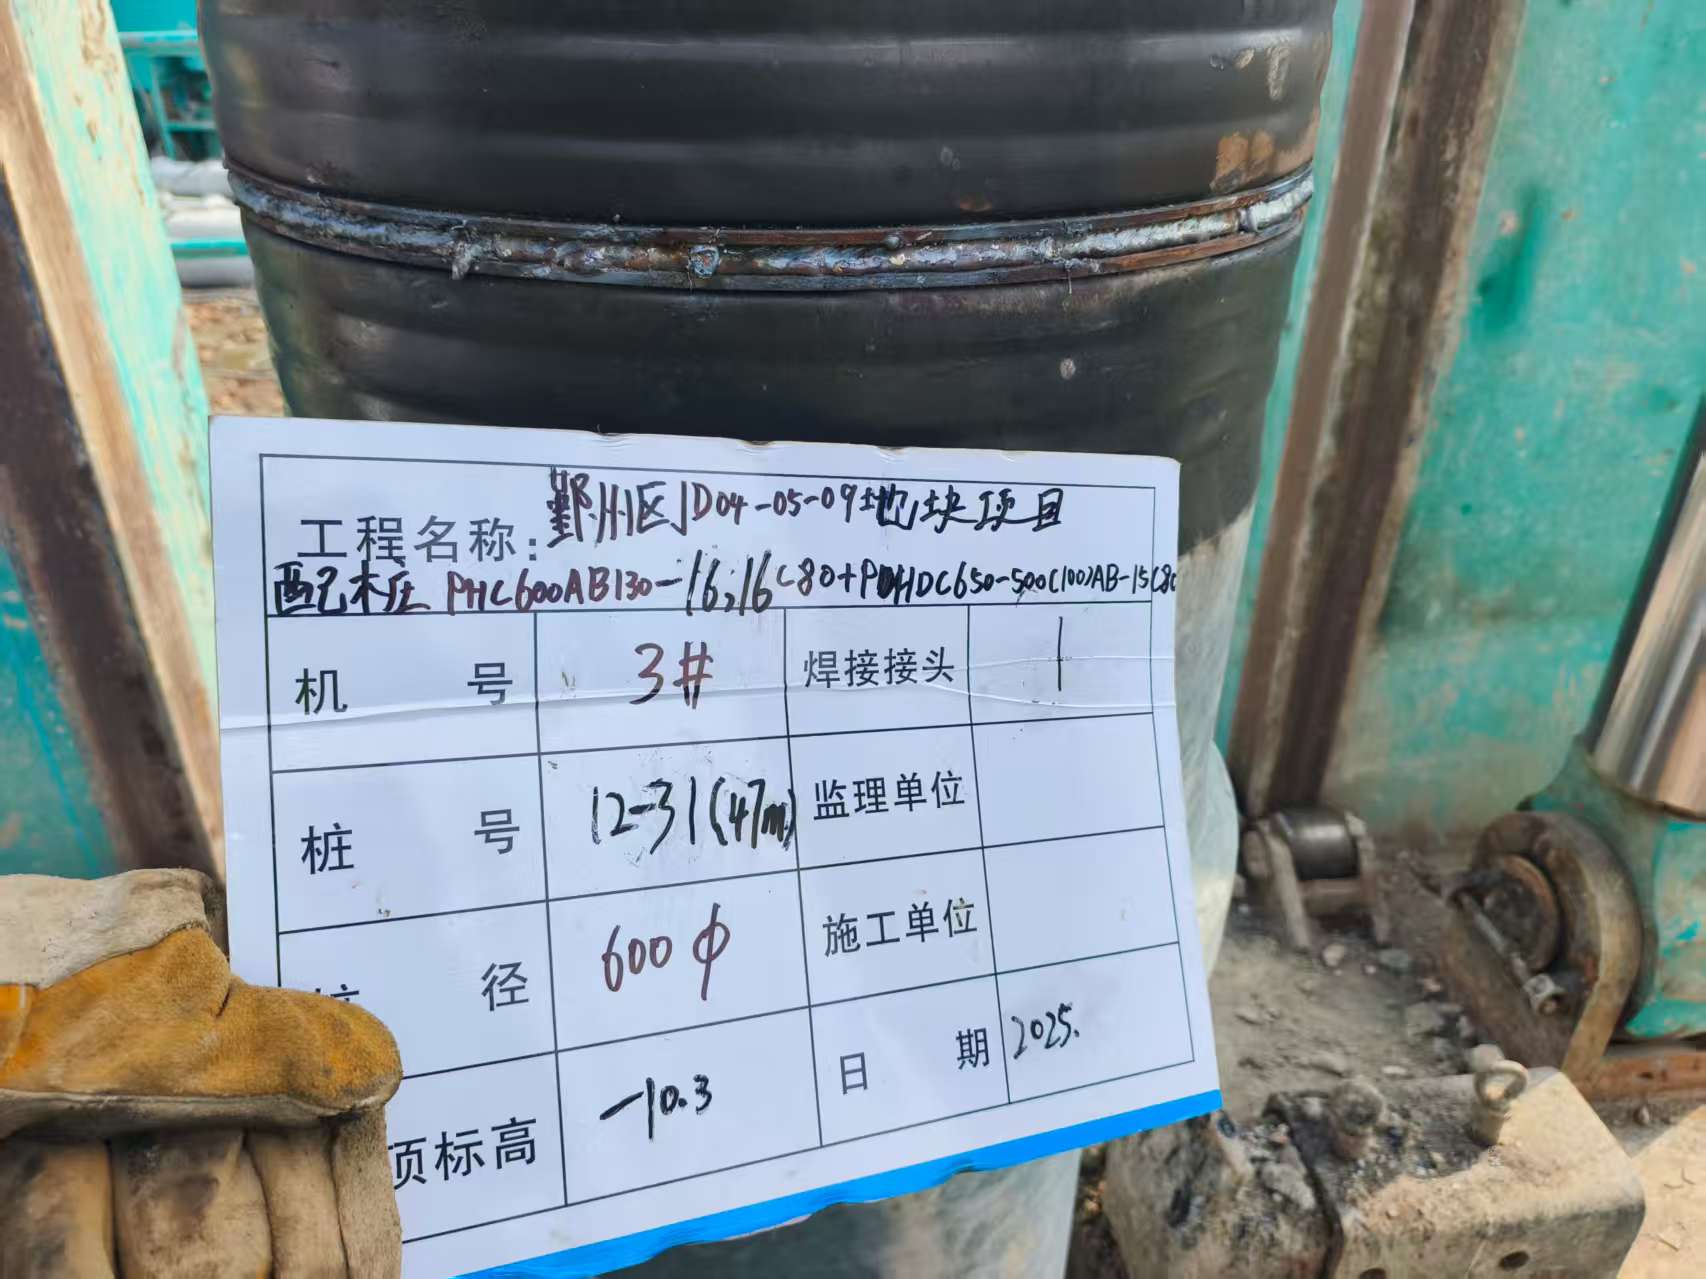 工程名称：鄞州区JD04-05-09地块项目
配桩 PHC600AB130-16,16C80+PHDC650-500(100)AB-15C80
机 号 3# 焊接接头 1
桩 号 12-31(47m) 监理单位
径 600φ 施工单位
顶标高 -10.3 日 期 2025.